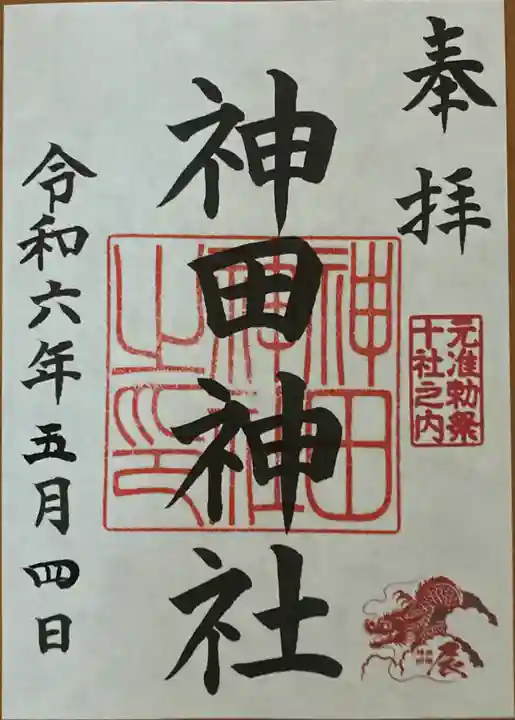 奉拝
元准勅祭
十社之内
神田神社
神田
神社
之印
辰
令和六年五月四日